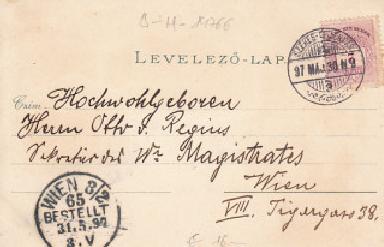 LEVELEZŐ-LAP
97 MAJ 30 N9
Czim:
Hochwohlgeboren
Herrn Otto v. Regius
Sekretär des Wr Magistrates
Wien
VIII. Tigergasse 38.
WIEN 8/2
65
BESTELLT
31.5.97
8.V